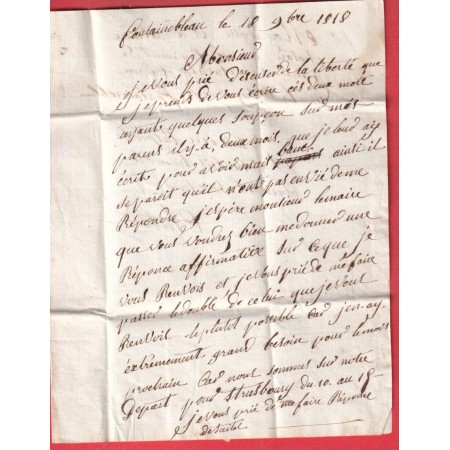 fontainebleau le 18 9bre 1818
Monsieur
je vous prié d'escuser de la liberté que
je prends de vous écrire ces deux mots
ayants quelques soupçon sur mes
parens il y à deux mois que je leur ay
écrits pour avoir mais ainsi il
se paroit qu'il n'ont pas envié de me
Répondre j'espère monsieur lemaire
que vous voudres bien me donner une
Réponce affirmative sur ce que je
vous Renvois et je vous prié de me faire
passer le double de celui que je vous
Renvois le plutot possible car j'en ay
extrêmement grand besoin pour le mois
prochain Car nous sommes sur notre
Depart pour strasbourg du 10. au 15
je vous prié de me faire Réponce
de suitte